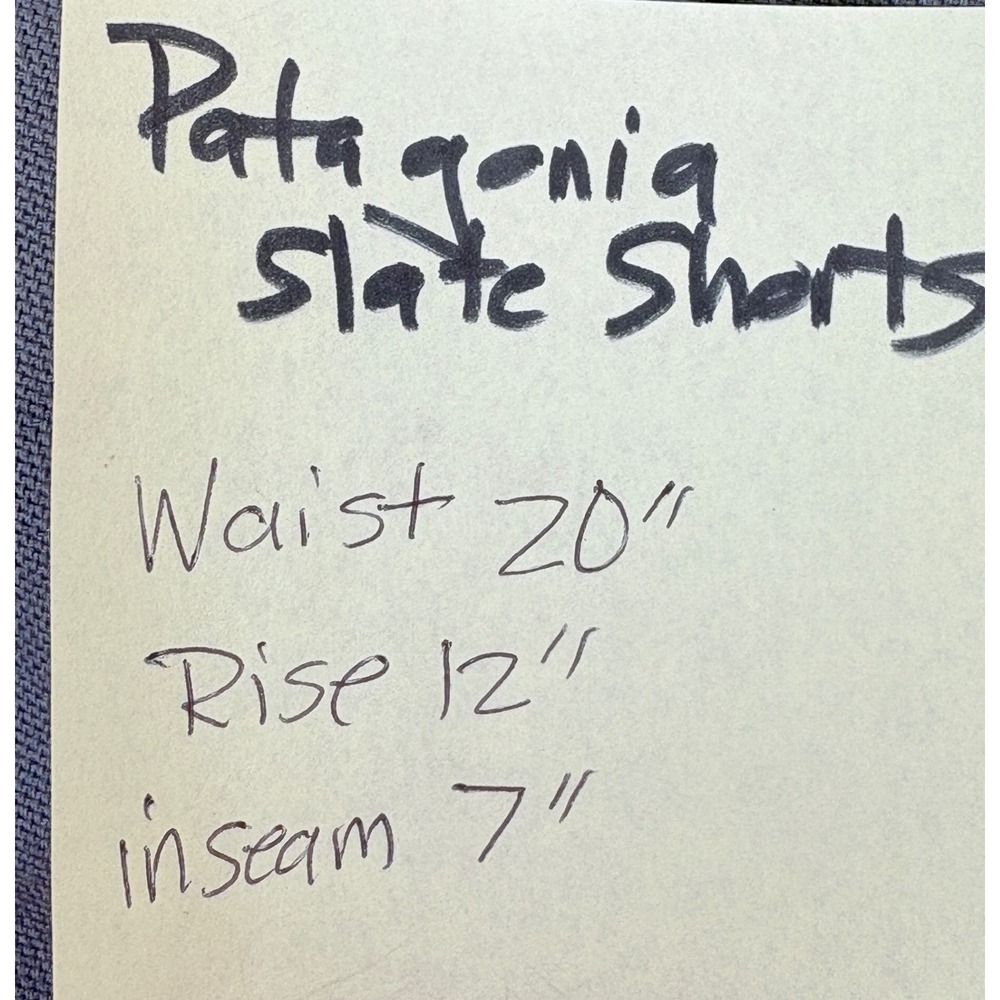 Patagonia
Slate Shorts
Waist 20"
Rise 12"
inseam 7"